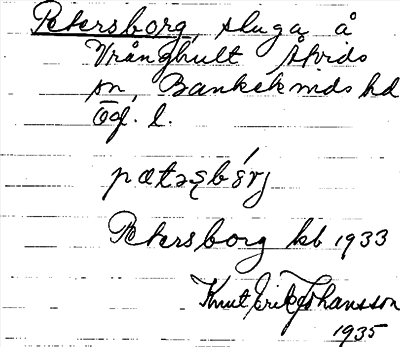 Petersborg, stuga å
Vrånghult Åtvids
sn, Bankekinds hd
Ög. l.
pætəʂbórj
Petersborg kb 1933
Knut Erik Johansson
1935